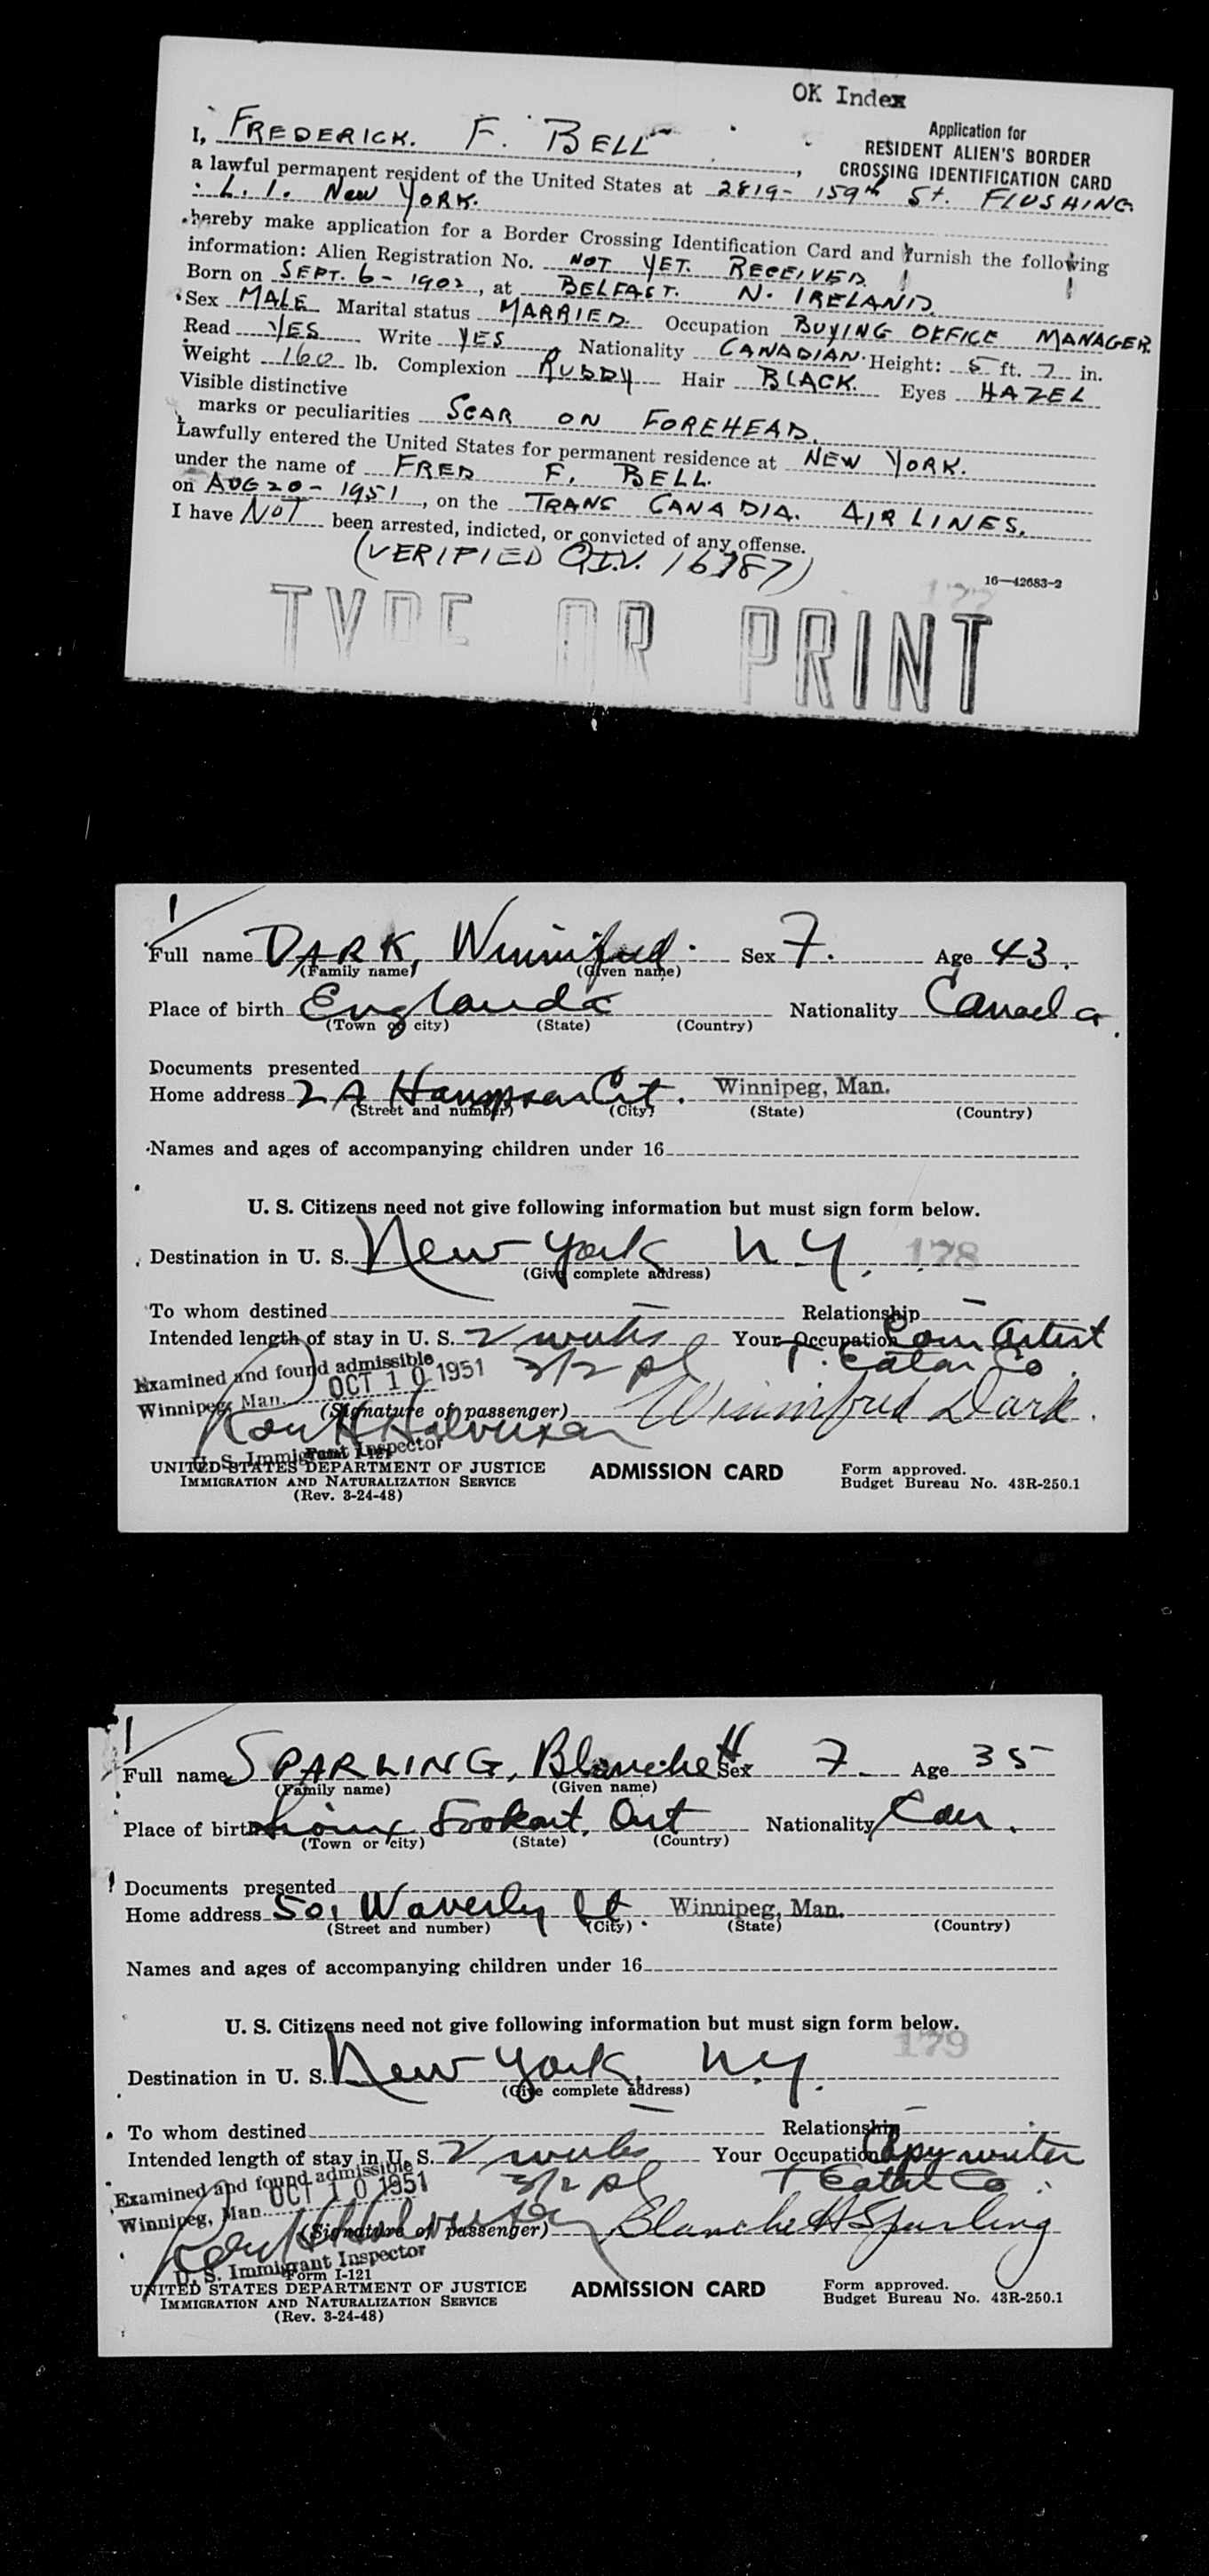 OK Index
Application for
RESIDENT ALIEN'S BORDER
CROSSING IDENTIFICATION CARD
I, FREDERICK. F. BELL,
a lawful permanent resident of the United States at 2819- 159th St. FLUSHING
L. I. NEW YORK.
hereby make application for a Border Crossing Identification Card and furnish the following
information: Alien Registration No. NOT YET. RECEIVED
Born on SEPT. 6- 1902, at BELFAST. N. IRELAND.
Sex MALE Marital status MARRIED. Occupation BUYING OFFICE MANAGER.
Read YES Write YES Nationality CANADIAN. Height: 5 ft. 7 in.
Weight 160 lb. Complexion RUDDY Hair BLACK. Eyes HAZEL
Visible distinctive
marks or peculiarities SCAR ON FOREHEAD.
Lawfully entered the United States for permanent residence at NEW YORK.
under the name of FRED F. BELL.
on AUG 20- 1951, on the TRANS CANADIA. AIR LINES.
I have NOT been arrested, indicted, or convicted of any offense.
(VERIFIED 16787)
16—42683-2
177
TYPE OR PRINT
1
Full name DARK, Winnifred. Sex F. Age 43.
(Family name) (Given name)
Place of birth England Nationality Canada.
(Town or city) (State) (Country)
Documents presented
Home address 2 A Ct. Winnipeg, Man.
(Street and number) (City) (State) (Country)
Names and ages of accompanying children under 16
U. S. Citizens need not give following information but must sign form below.
Destination in U. S. New York N.Y. 178
(Give complete address)
To whom destined — Relationship —
Intended length of stay in U. S. 2 weeks Your Occupation Com Artist
T. Eaton Co.
Examined and found admissible
Winnipeg, Man. OCT 10 1951
(Signature of passenger) Winnifred Dark.
U. S. Immigrant Inspector
UNITED STATES DEPARTMENT OF JUSTICE
IMMIGRATION AND NATURALIZATION SERVICE
(Rev. 3-24-48)
ADMISSION CARD
Form approved.
Budget Bureau No. 43R-250.1
1
Full name SPARLING, Blanche H Sex F. Age 35
(Family name) (Given name)
Place of birth Sioux Lookout, Ont Nationality Can.
(Town or city) (State) (Country)
Documents presented
Home address 501 Waverly St. Winnipeg, Man.
(Street and number) (City) (State) (Country)
Names and ages of accompanying children under 16
U. S. Citizens need not give following information but must sign form below.
179
Destination in U. S. New York, N.Y.
(Give complete address)
To whom destined — Relationship —
Intended length of stay in U. S. 2 weeks Your Occupation Copy writer
T Eaton Co.
Examined and found admissible
Winnipeg, Man. OCT 10 1951
(Signature of passenger) Blanche H Sparling
U. S. Immigrant Inspector
Form I-121
UNITED STATES DEPARTMENT OF JUSTICE
IMMIGRATION AND NATURALIZATION SERVICE
(Rev. 3-24-48)
ADMISSION CARD
Form approved.
Budget Bureau No. 43R-250.1